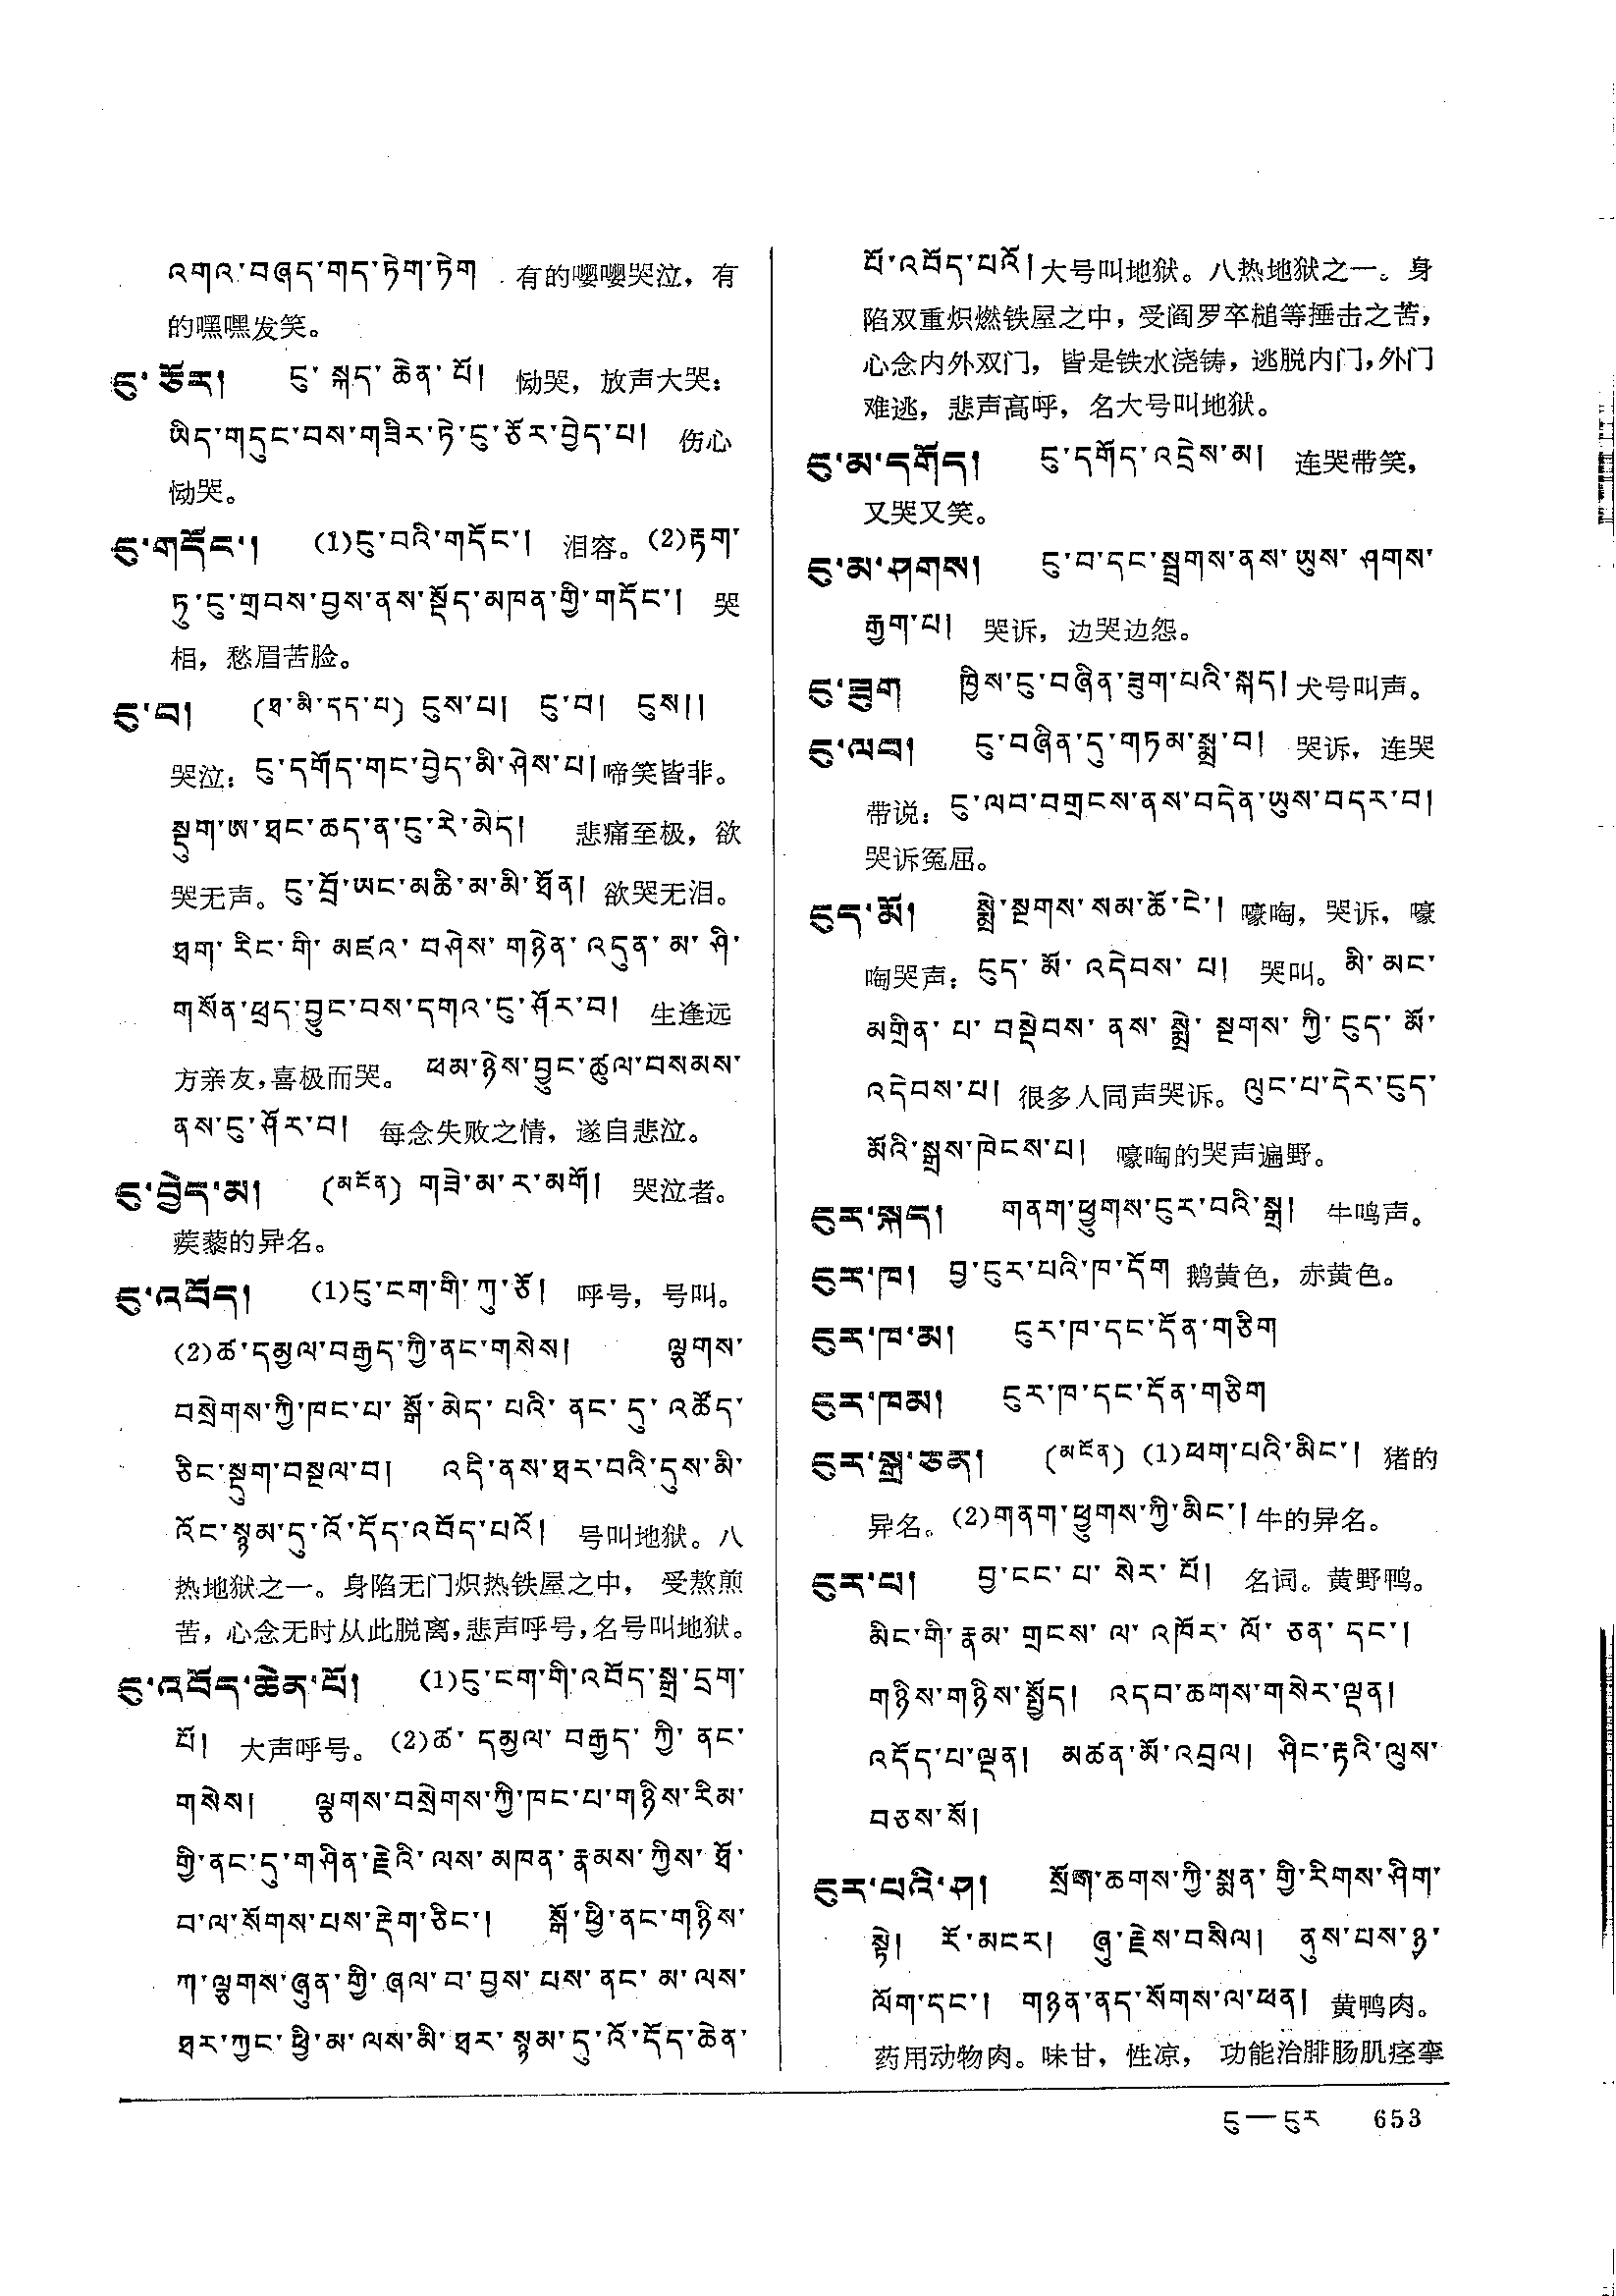 འགའ་བཞད་གད་ཏེག་ཏེག 有的嘤嘤哭泣，有
的嘿嘿发笑。
ངུ་ཙོར། ངུ་སྐད་ཆེན་པོ། 恸哭，放声大哭：
ཡིད་གདུང་བས་གཟིར་ཏེ་ངུ་ཙོར་བྱེད་པ། 伤心
恸哭。
ངུ་གདོང་། (1)ངུ་བའི་གདོང་། 泪容。(2)རྟག་
ཏུ་ངུ་གྲབས་བྱས་ནས་སྡོད་མཁན་གྱི་གདོང་། 哭
相，愁眉苦脸。
ངུ་བ། (ཐ་མི་དད་པ) ངུས་པ། ངུ་བ། ངུས།།
哭泣：ངུ་དགོད་གང་བྱེད་མི་ཤེས་པ།啼笑皆非。
སྡུག་ཨ་ཐང་ཆད་ན་ངུ་རེ་མེད། 悲痛至极，欲
哭无声。ངུ་བློ་ཡང་མཆི་མ་མི་ཐོན། 欲哭无泪。
ཐག་རིང་གི་མཛའ་བཤེས་གཉེན་འདུན་མ་ཤི་
གསོན་ཕྲད་བྱུང་བས་དགའ་ངུ་ཤོར་བ། 生逢远
方亲友，喜极而哭。 ཕམ་ཉེས་བྱུང་ཚུལ་བསམས་
ནས་ངུ་ཤོར་བ། 每念失败之情，遂自悲泣。
ངུ་བྱེད་མ། (མངོན) གཟེ་མ་ར་མགོ། 哭泣者。
蒺藜的异名。
ངུ་འབོད། (1)ངུ་ངག་གི་ཀུ་ཅོ། 呼号，号叫。
(2)ཚ་དམྱལ་བརྒྱད་ཀྱི་ནང་གསེས། ལྕགས་
བསྲེགས་ཀྱི་ཁང་པ་སྒོ་མེད་པའི་ནང་དུ་འཚོད་
ཅིང་སྡུག་བསྔལ་བ། འདི་ནས་ཐར་བའི་དུས་མི་
འོང་སྙམ་དུ་འོ་དོད་འབོད་པའོ། 号叫地狱。八
热地狱之一。身陷无门炽热铁屋之中， 受熬煎
苦，心念无时从此脱离，悲声呼号，名号叫地狱。
ངུ་འབོད་ཆེན་པོ། (1)ངུ་ངག་གི་འབོད་སྒྲ་དྲག་
པོ། 大声呼号。(2)ཚ་དམྱལ་བརྒྱད་ཀྱི་ནང་
གསེས། ལྕགས་བསྲེགས་ཀྱི་ཁང་པ་གཉིས་རིམ་
གྱི་ནང་དུ་གཤིན་རྗེའི་ལས་མཁན་རྣམས་ཀྱིས་ཐོ་
བ་ལ་སོགས་པས་རྡེག་ཅིང་། སྒོ་ཕྱི་ནང་གཉིས་
ཀ་ལྕགས་ཞུན་གྱི་ཞལ་བ་བྱས་པས་ནང་མ་ལས་
ཐར་ཀྱང་ཕྱི་མ་ལས་མི་ཐར་སྙམ་དུ་འོ་དོད་ཆེན་
པོ་འབོད་པའོ།大号叫地狱。八热地狱之一。身
陷双重炽燃铁屋之中，受阎罗卒槌等捶击之苦，
心念内外双门，皆是铁水浇铸，逃脱内门，外门
难逃，悲声高呼，名大号叫地狱。
ངུ་མ་དགོད། ངུ་དགོད་འདྲེས་མ། 连哭带笑，
又哭又笑。
ངུ་མ་ཤགས། ངུ་བ་དང་སྦྲགས་ནས་ཡུས་ཤགས་
རྒྱག་པ། 哭诉，边哭边怨。
ངུ་ཟུག ཁྱིས་ངུ་བཞིན་ཟུག་པའི་སྐད། 犬号叫声。
ངུ་ལབ། ངུ་བཞིན་དུ་གཏམ་སྨྲ་བ། 哭诉，连哭
带说：ངུ་ལབ་བགྲངས་ནས་བདེན་ཡུས་བདར་བ།
哭诉冤屈。
ངུད་མོ། སྨྲེ་སྔགས་སམ་ཆོ་ངེ་། 嚎啕，哭诉，嚎
啕哭声：ངུད་མོ་འདེབས་པ། 哭叫。མི་མང་
མགྲིན་པ་བསྡེབས་ནས་སྨྲེ་སྔགས་ཀྱི་ངུད་མོ་
འདེབས་པ། 很多人同声哭诉。ལུང་པ་དེར་ངུད་
མོའི་སྒྲས་ཁེངས་པ། 嚎啕的哭声遍野。
ངུར་སྐད། གནག་ཕྱུགས་ངུར་བའི་སྒྲ། 牛鸣声。
ངུར་ཁ། བྱ་ངུར་པའི་ཁ་དོག 鹅黄色，赤黄色。
ངུར་ཁ་མ། ངུར་ཁ་དང་དོན་གཅིག
ངུར་ཁམ། ངུར་ཁ་དང་དོན་གཅིག
ངུར་སྒྲ་ཅན། (མངོན) (1)ཕག་པའི་མིང་། 猪的
异名。(2)གནག་ཕྱུགས་ཀྱི་མིང་།牛的异名。
ངུར་པ། བྱ་ངང་པ་སེར་པོ། 名词。黄野鸭。
མིང་གི་རྣམ་གྲངས་ལ་འཁོར་ལོ་ཅན་དང་།
གཉིས་གཉིས་སྤྱོད། འདབ་ཆགས་གསེར་ལྡན།
འདོད་པ་ལྡན། མཚན་མོ་འབྲལ། ཤིང་རྟའི་ལུས་
བཅས་སོ།
ངུར་པའི་ཤ། སྲོག་ཆགས་ཀྱི་སྨན་གྱི་རིགས་ཤིག་
སྟེ། རོ་མངར། ཞུ་རྗེས་བསིལ། ནུས་པས་ཉ་
ལོག་དང་། གཉན་ནད་སོགས་ལ་ཕན། 黄鸭肉。
药用动物肉。味甘，性凉， 功能治腓肠肌痉挛
ངུ—ངུར 653